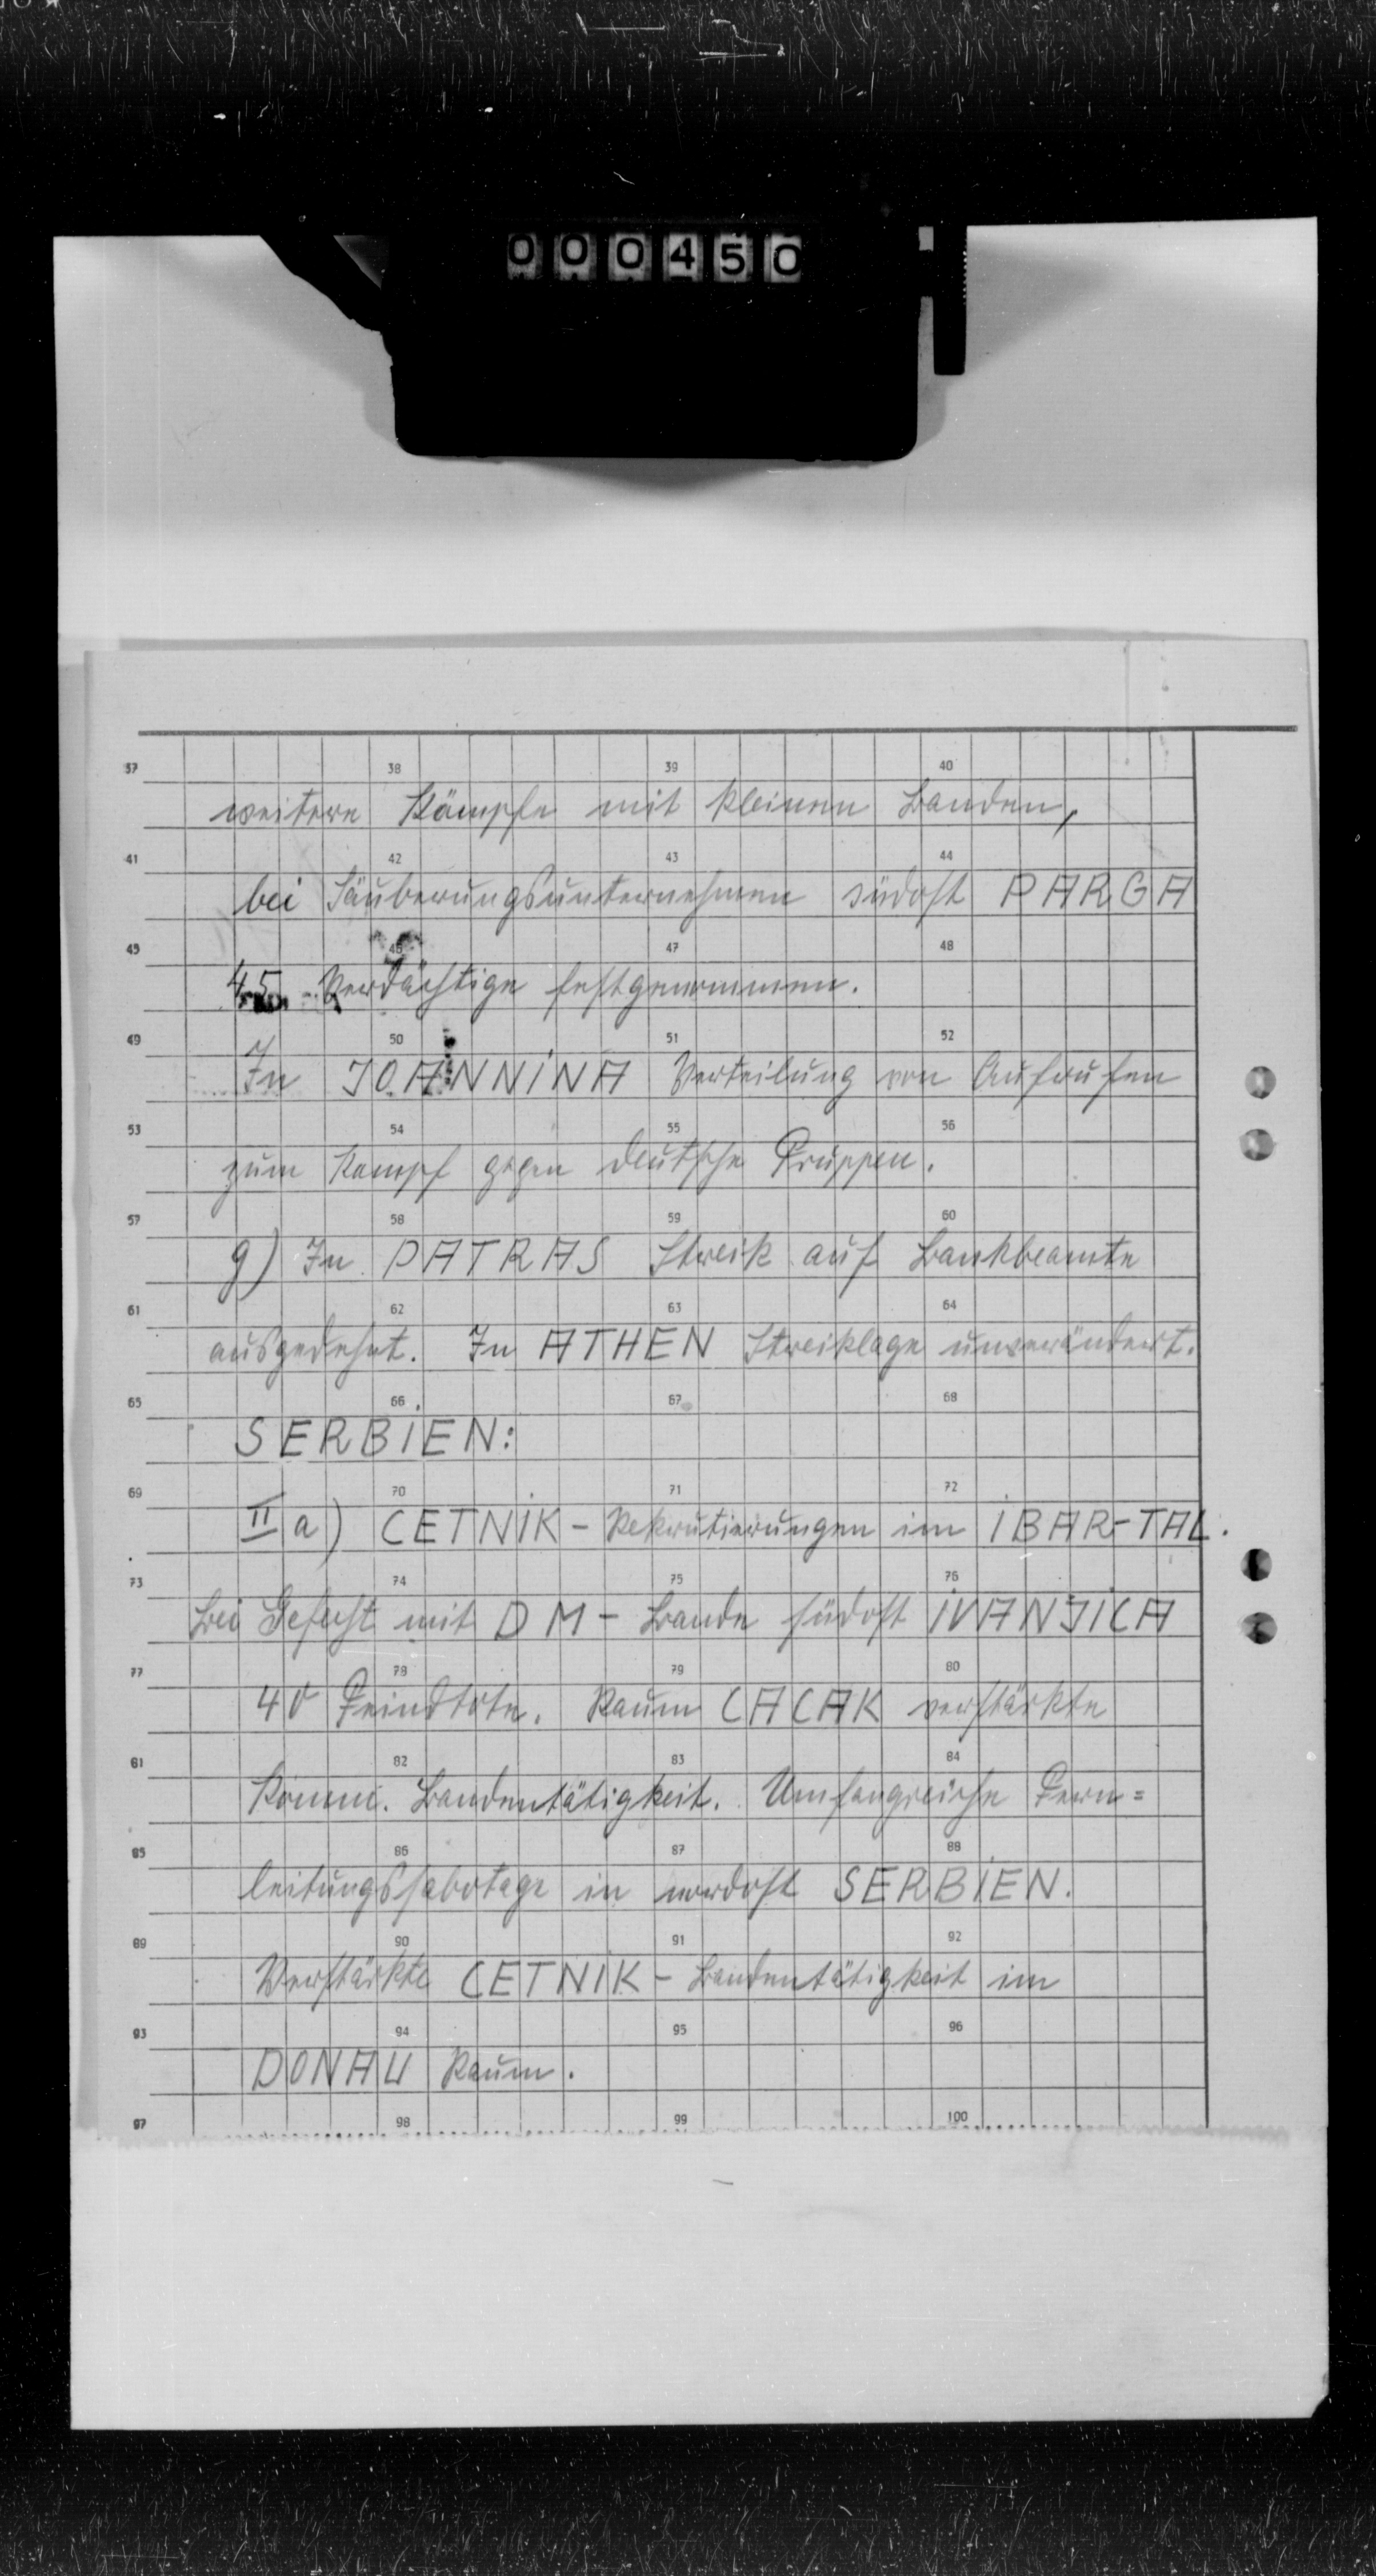 000450
37 38 39 40
weitere Kämpfe mit kleinen Banden,
41 42 43 44
bei Säuberungsunternehmen südost PARGA
45 46 47 48
45 Verdächtige festgenommen.
49 50 51 52
In JOANNINA Verteilung von Aufrufen
53 54 55 56
zum Kampf gegen deutsche Truppen.
57 58 59 60
g) In PATRAS Streik auf Bankbeamte
61 62 63 64
ausgedehnt. In ATHEN Streiklage unverändert.
65 66 67 68
SERBIEN:
69 70 71 72
II a) CETNIK - Rekrutierungen im IBAR-TAL.
73 74 75 76
Bei Gefecht mit DM - Bande südost IVANJICA
77 78 79 80
40 Feindtote. Raum CACAK verstärkte
81 82 83 84
Komm. Bandentätigkeit. Umfangreiche Fern=
85 86 87 88
leitungssabotage in nordost SERBIEN.
89 90 91 92
Verstärkte CETNIK - Bandentätigkeit im
93 94 95 96
DONAU Raum.
97 98 99 100